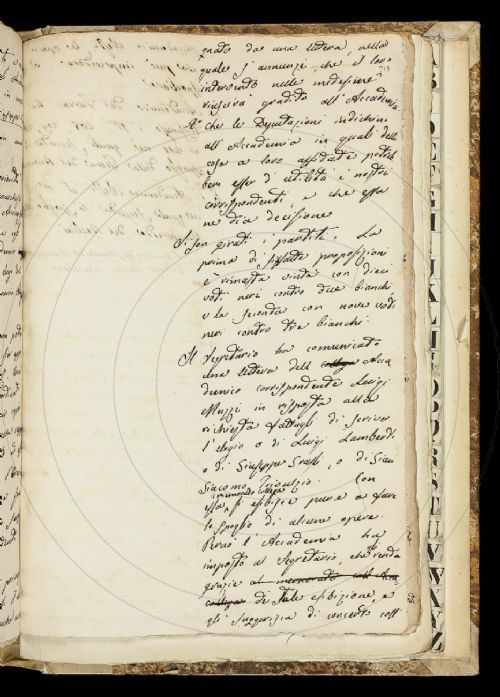 gnato da una lettera, nella
quale s'annunzi, che il loro
intervento nelle medesime
riuscirà gradito all'Accademia
4.° che le Deputazioni indichino
all'Accademia in quali delle
cose a loro affidate potreb
bero esser d'utilità i nostri
corrispondenti, e che essa
ne dia decisione
Si son girati i partiti. La
prima di siffatte proposizioni
è rimasta vinta con dieci
voti neri contro due bianchi
e la seconda con nove voti
neri contro tre bianchi.
Il Segretario ha comunicato
una lettera dell' collega Acca
demico corrispondente Luigi
Muzzi in risposta alla
richiesta fattagli di scriver
l'elogio o di Luigi Lamberti,
o di Giuseppe Grassi, o di Gian
Giacomo Trivulzio. Con
essa il mentovato collega
s'esibisce pure a fare
lo spoglio di alcune opere.
Perciò l'Accademia ha
imposto al Segretario, che gli renda
grazie al mentovato
collega di tale esibizione, e
gli suggerisca di concerto coll
A B D E F G H I K L M O P Q R S T U V W X Y Z